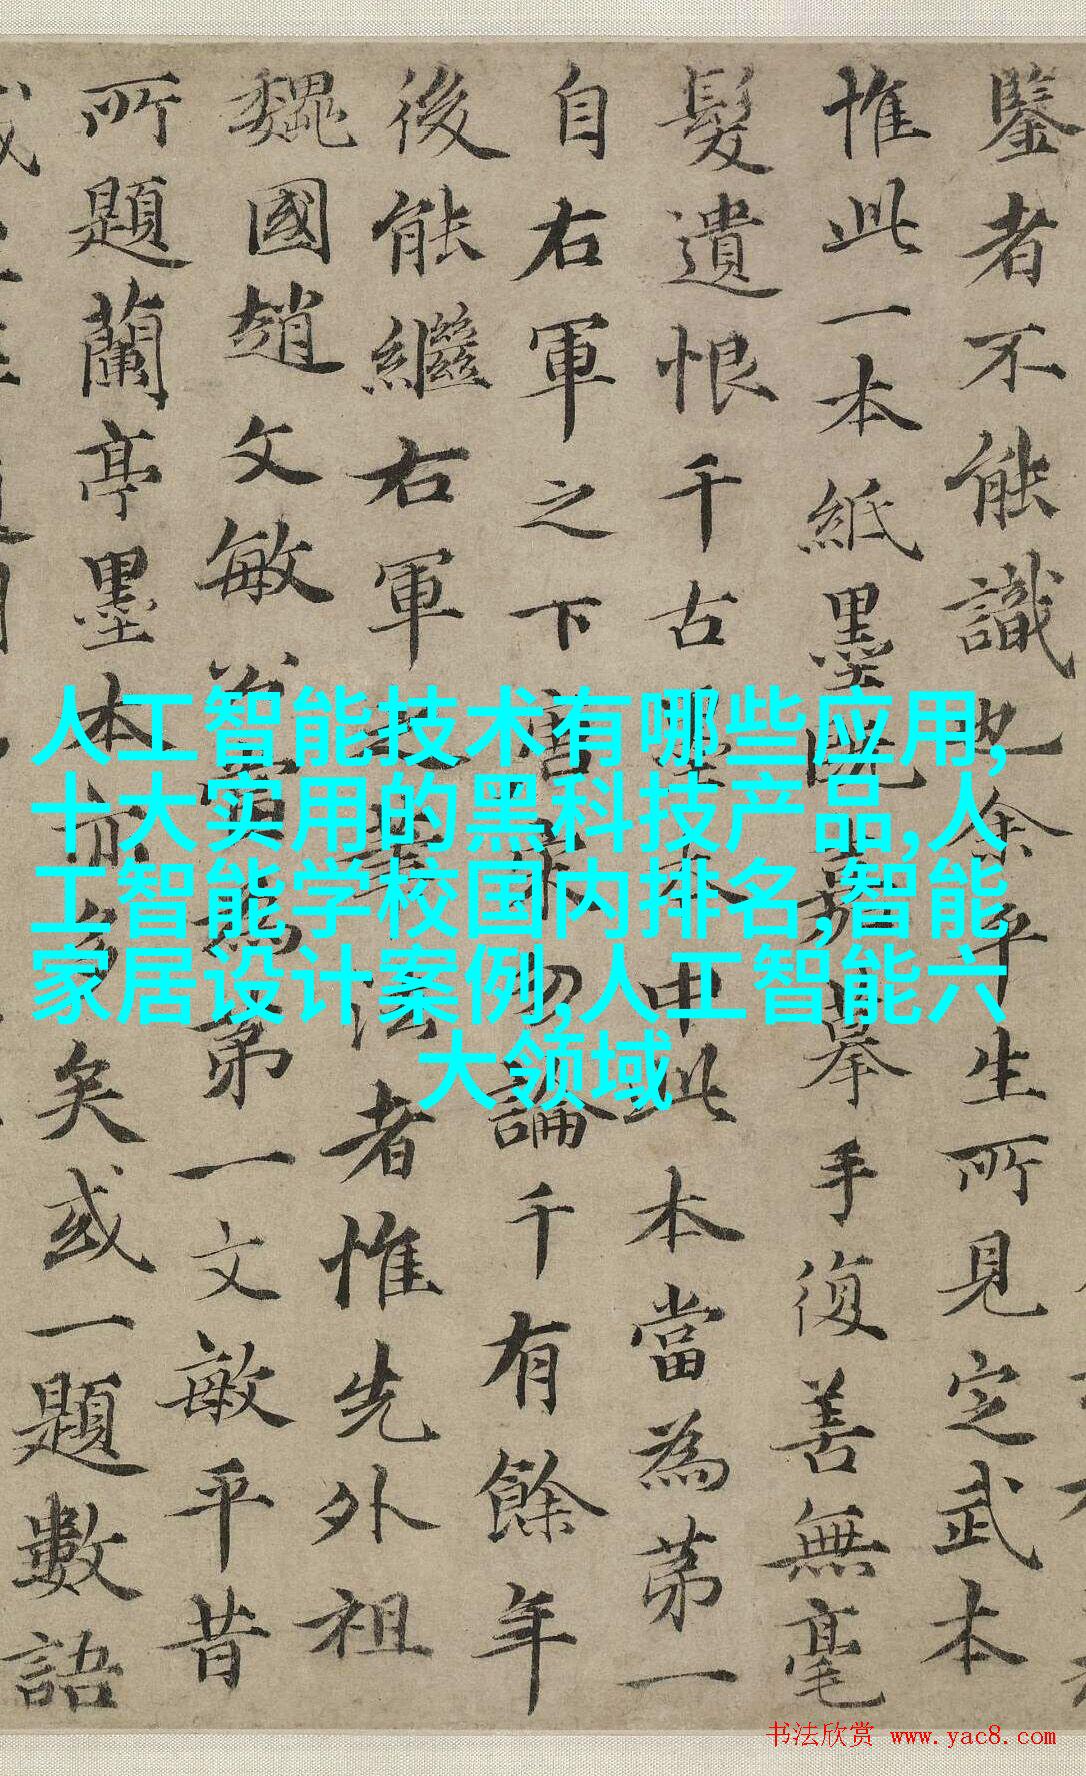 鑒者不能識也余平生所見定武本
惟此一本紙墨既嘉摹手復善無毫
髮遺恨千古墨本中此本當為苐一
自右軍之下唐宋勿論千有餘年
後能繼右軍法者惟先外祖
魏國趙文敏公當為苐一文敏平昔
所題蘭亭墨本亦多矣或一題數語
人工智能技术有哪些应用,
十大实用的黑科技产品,人
工智能学校国内排名,智能
家居设计案例,人工智能六
大领域
书法欣赏 www.yac8.com